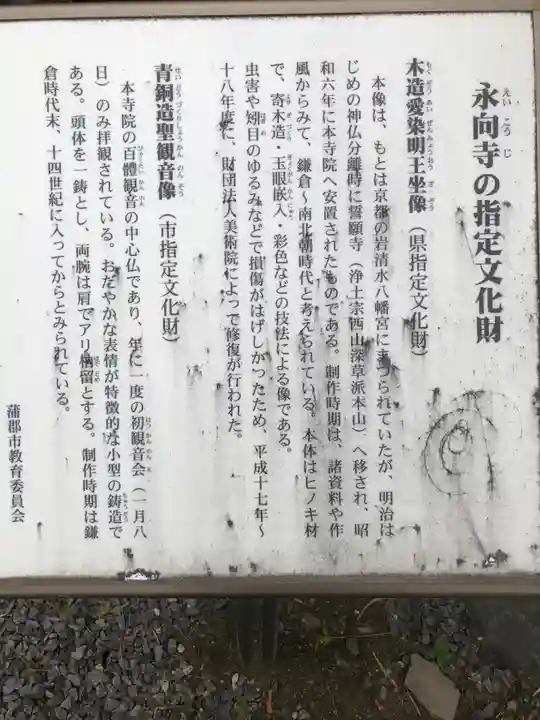 永向寺の指定文化財
えいこうじ
木造愛染明王坐像（県指定文化財）
もくぞうあいぜんみょうおうざぞう
本像は、もとは京都の岩清水八幡宮にまつられていたが、明治は
じめの神仏分離時に誓願寺（浄土宗西山深草派本山）へ移され、昭
和六年に本寺院へ安置されたものである。制作時期は、諸資料や作
風からみて、鎌倉～南北朝時代と考えられている。本体はヒノキ材
で、寄木造・玉眼嵌入・彩色などの技法による像である。
よせぎづくり ぎょくがんかんにゅう
虫害や矧目のゆるみなどで損傷がはげしかったため、平成十七年～
はぎめ
十八年度に、財団法人美術院によって修復が行われた。
青銅造聖観音像（市指定文化財）
せいどうづくりしょうかんのんぞう
本寺院の百體観音の中心仏であり、年に一度の初観音会（一月八
ひゃくたいかんのん はつかんのんえ
日）のみ拝観されている。おだやかな表情が特徴的な小型の鋳造で
ちゅうぞう
ある。頭体を一鋳とし、両腕は肩でアリ枘留とする。制作時期は鎌
ほぞどめ
倉時代末、十四世紀に入ってからとみられている。
蒲郡市教育委員会